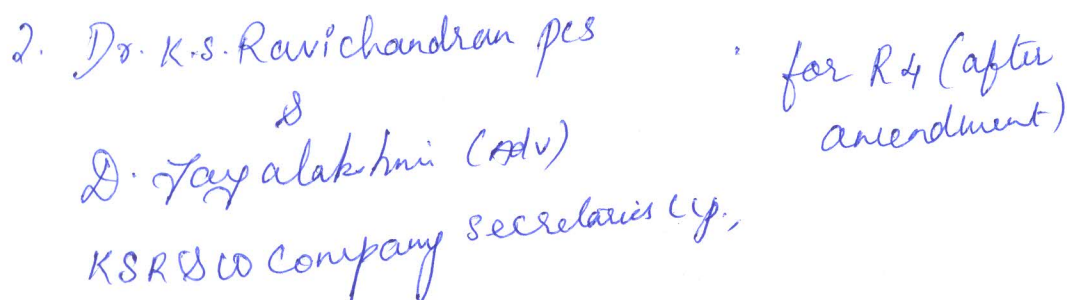 2. Dr. K.S. Ravichandran PCS
&
D. Jayalakshmi (Adv)
KSR & Co Company Secretaries LLP.,
for R4 (after
amendment)